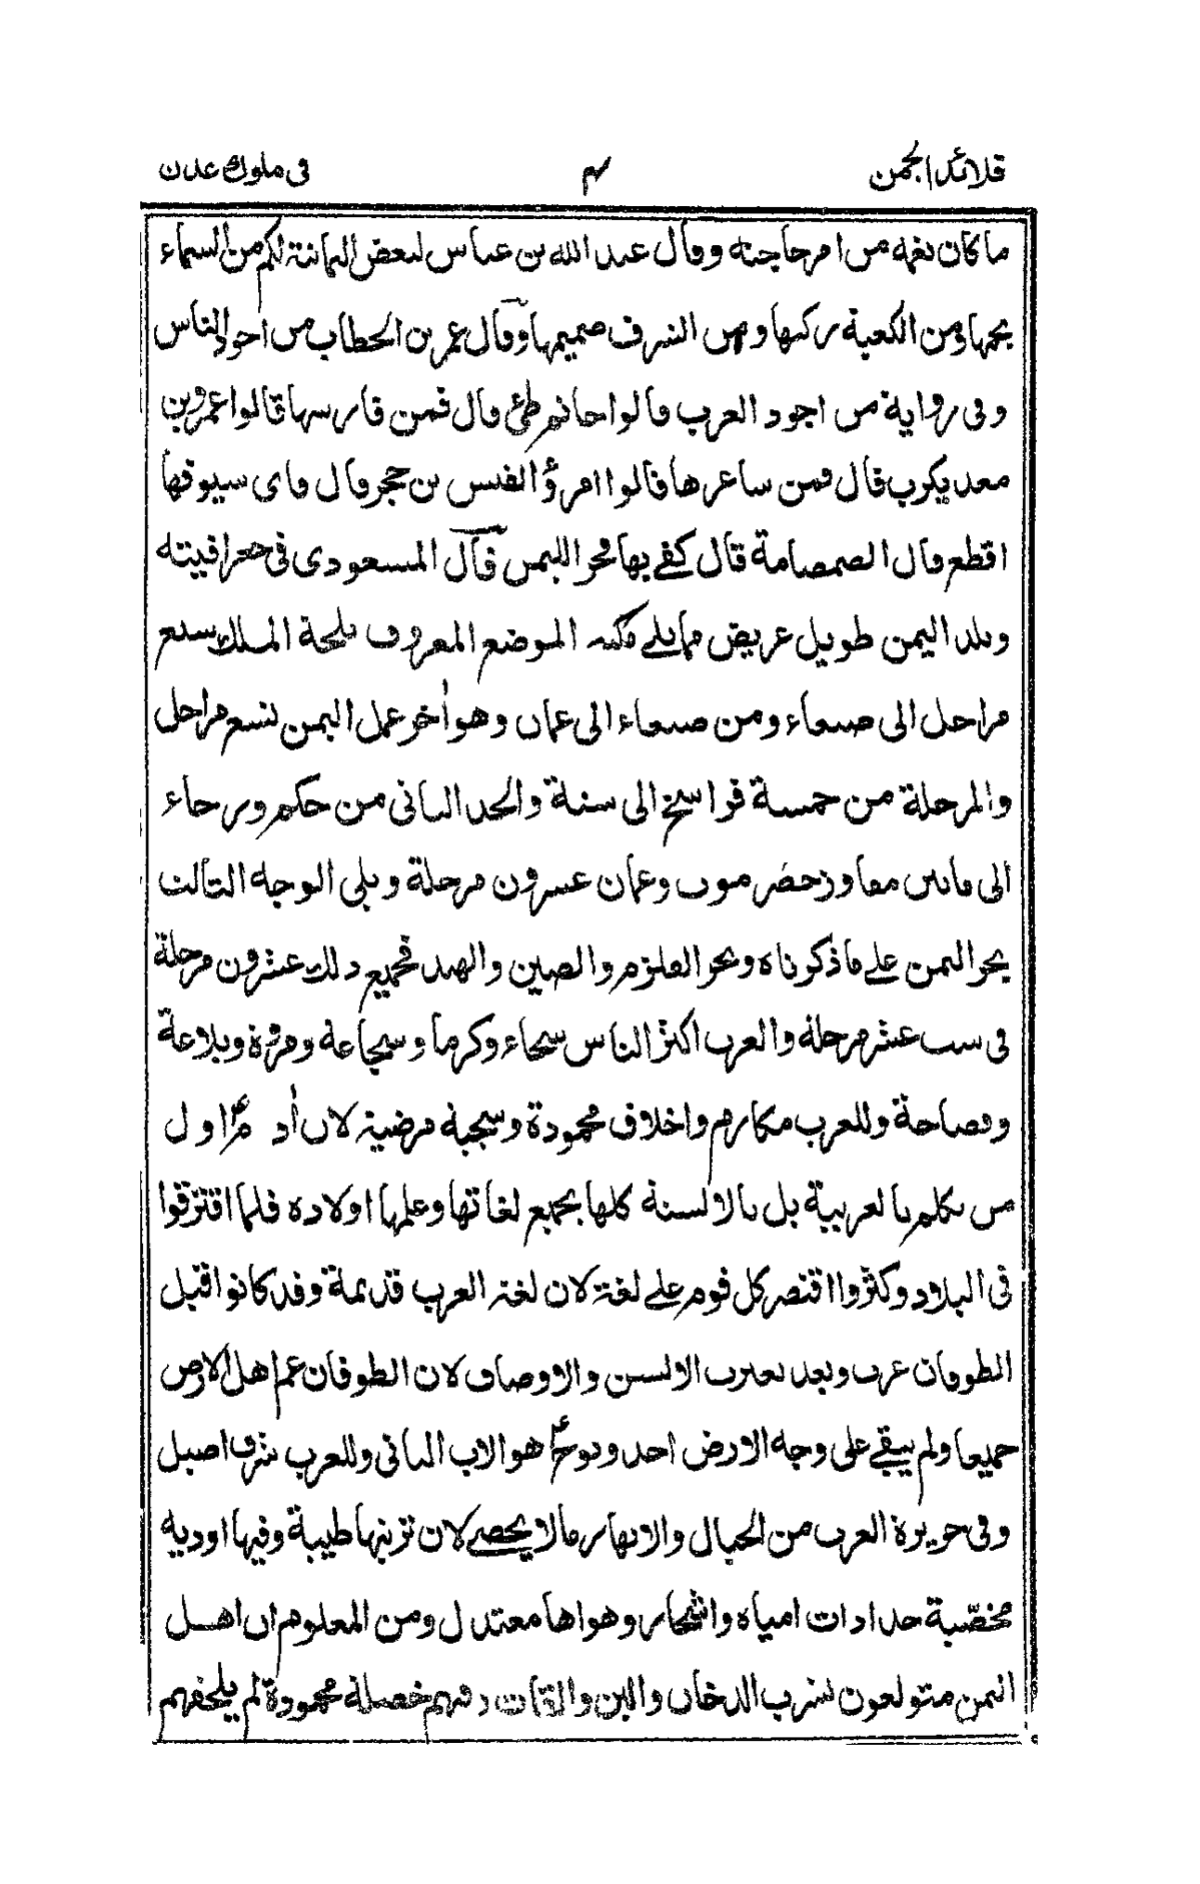 قلائد الجمن ٤ فى ملوك عدن
ما كان نعمه من امر حاجته وقال عبد الله بن عباس لبعض اليمانية لكم من السماء
نجمها ومن الكعبة ركنها ومن الشرف صميمها وقال عمر بن الخطاب من اجود الناس
وفى رواية من اجود العرب قالوا حاتم طئ قال فمن فارسها قالوا عمرو بن
معديكرب قال فمن شاعرها قالوا امرؤ القيس بن حجر قال فاى سيوفها
اقطع قال الصمصامة قال كفى بها فخر اليمن قال المسعودى فى جغرافيته
وبلد اليمن طويل عريض مما يلى مكه الموضع المعروف بلحة الملك سبع
مراحل الى صنعاء ومن صنعاء الى عمان وهو اٰخر عمل اليمن تسع مراحل
والمرحلة من خمسة فراسخ الى ستة والحد الثانى من حكم ورحاء
الى مابين مفاوز حضرموت وعمان عشرون مرحلة ويلى الوجه الثالث
بحر اليمن على ما ذكرناه وبحر القلزم والصين والهند فجميع ذلك عشرون مرحلة
فى ست عشر مرحلة والعرب اكثر الناس سخاء وكرما وشجاعة ومروة وبلاغة
وفصاحة وللعرب مكارم واخلاق محمودة وسجية مرضية لان اٰدمؑ اول
من تكلم بالعربية بل بالالسنة كلها بجميع لغاتها وعلمها اولاده فلما افترقوا
فى البلاد وكثروا اقتصر كل قوم على لغة لان لغة العرب قديمة وقد كانوا قبل
الطوفان عرب وبعد تغيرت الالسن والاوصاف لان الطوفان عم اهل الارض
جميعا ولم يبقى على وجه الارض احد ونوحؑ هو الاب الثانى وللعرب شرف اصيل
وفى جزيرة العرب من الجبال والانهار ما لا يحصى لان تربتها طيبة وفيها اوديه
مخصّبة جدا ذات امياه واشجار وهواها معتدل ومن المعلوم ان اهل
اليمن متولعون لشرب الدخان والبن والقات وفيهم خصلة محمودة لم يلحقهم